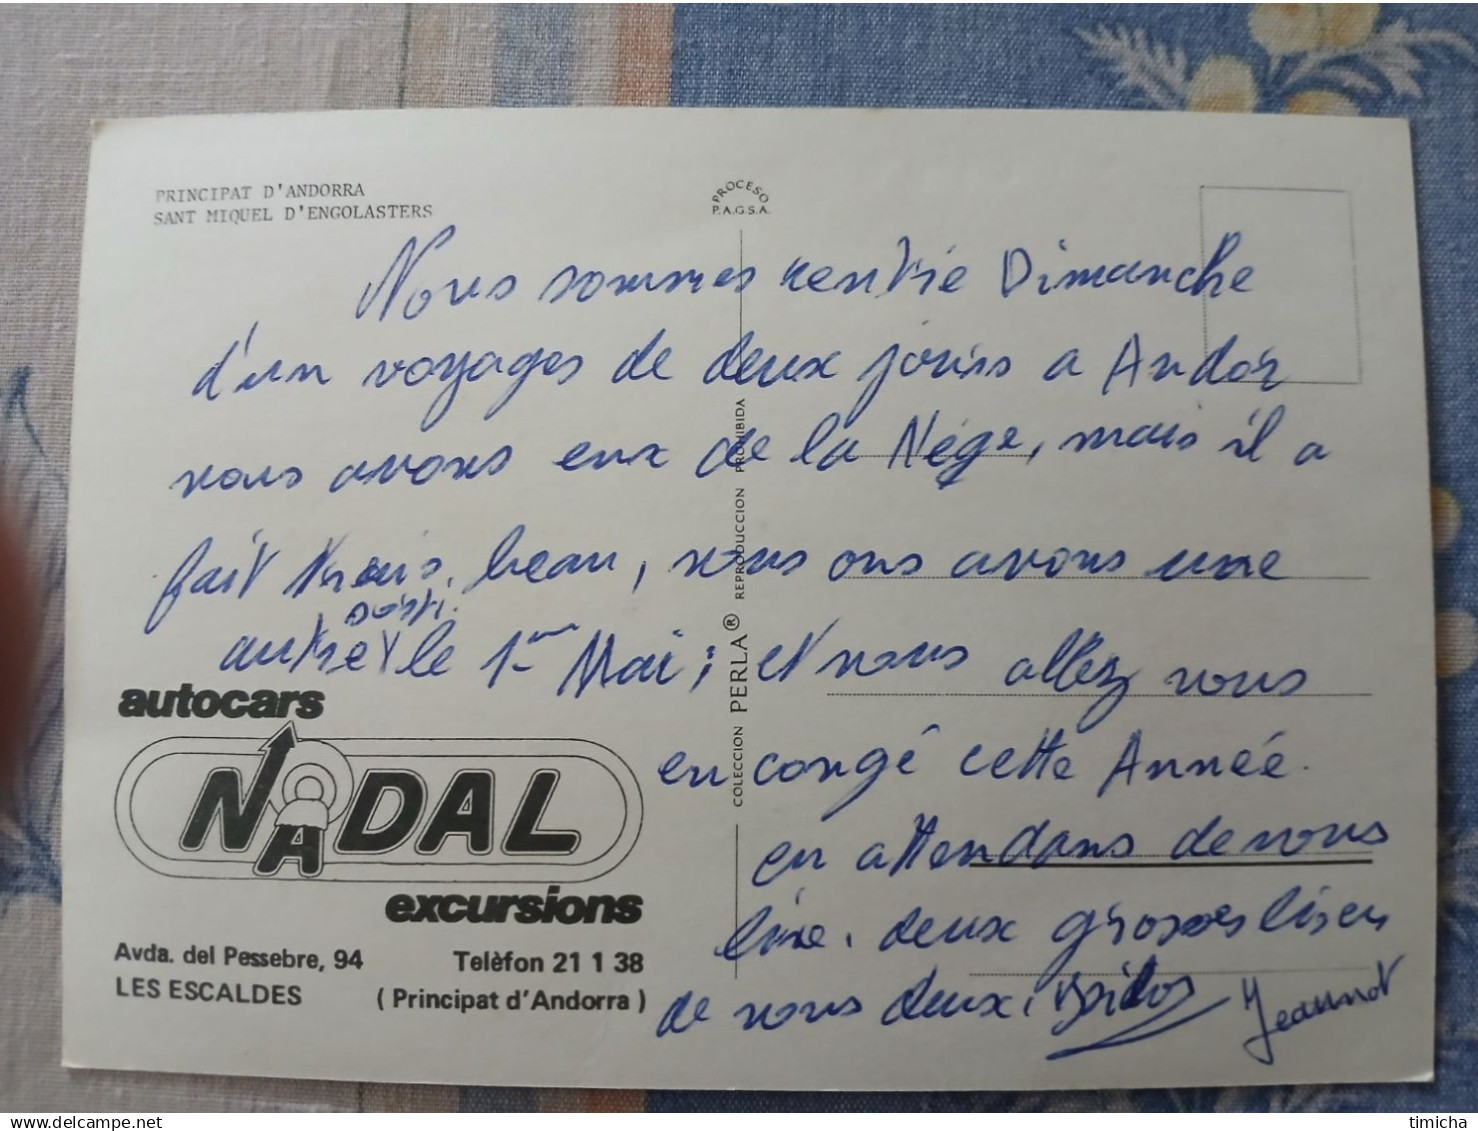 PRINCIPAT D'ANDORRA
SANT MIQUEL D'ENGOLASTERS
PROCESO
P.A.G.S.A.
Nous sommes rentrée Dimanche
d'un voyages de deux jours a Andor
nous avons eux de la Nége, mais il a
fait trois beau, nous ons avons une
autre le 1er Mai; et nous allez vous
en congé cette Année.
en attendans de vous
lire. deux grosses
de nous deux, Jeannot
autocars
NADAL
excursions
Avda. del Pessebre, 94
LES ESCALDES
Telèfon 21 1 38
(Principat d'Andorra)
COLECCION PERLA® REPRODUCCION PROHIBIDA
timicha